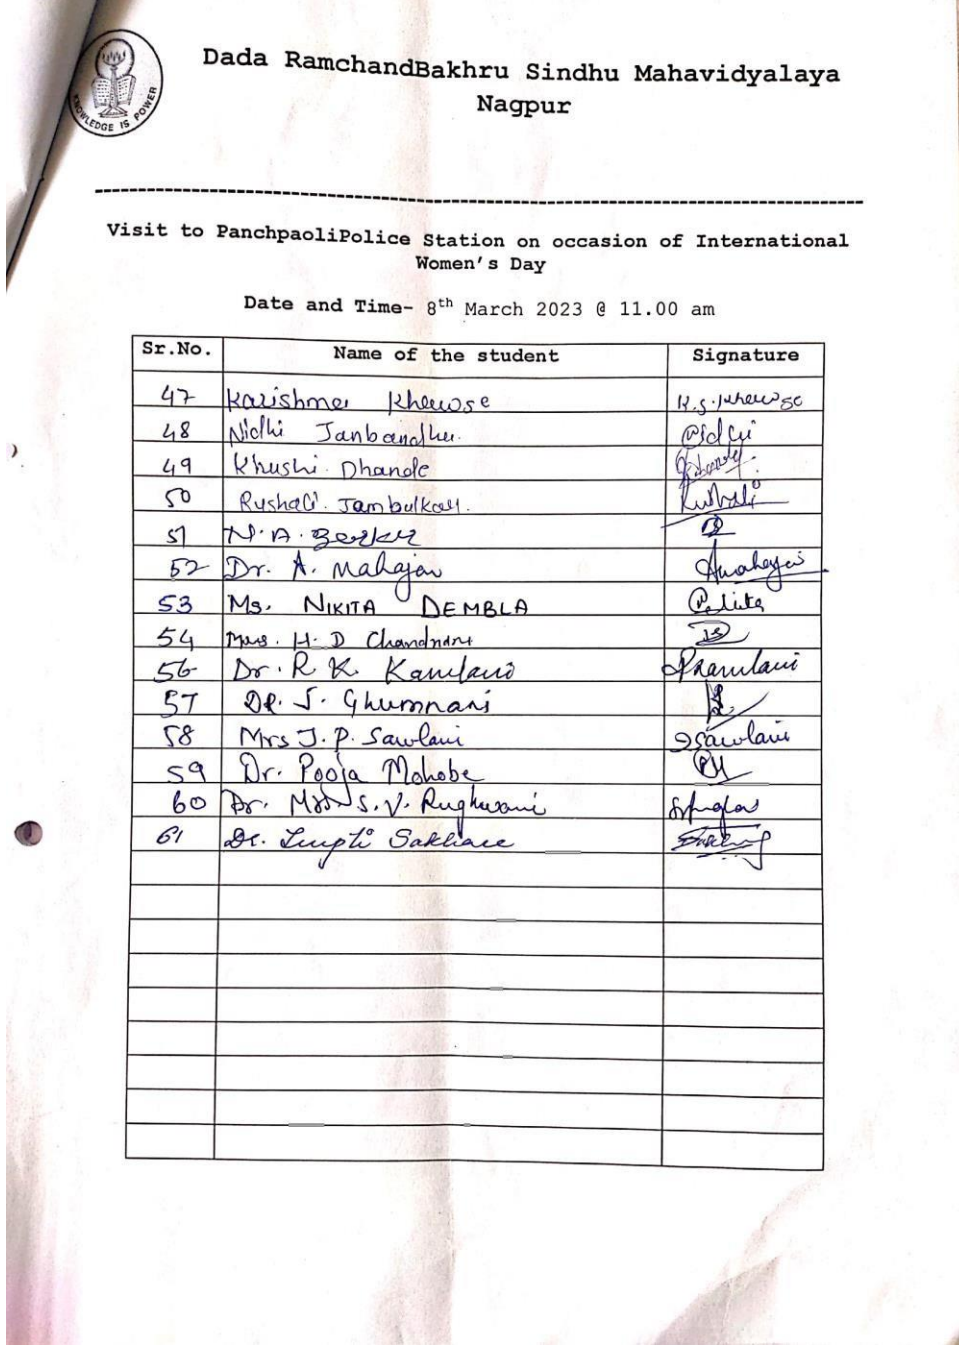 KNOWLEDGE IS POWER
Dada RamchandBakhru Sindhu Mahavidyalaya
Nagpur
Visit to PanchpaoliPolice Station on occasion of International
Women's Day
Date and Time- 8th March 2023 @ 11.00 am
Sr.No. Name of the student Signature
47 Karishma Khewse K.S.Khewse
48 Nidhi Janbandhu. Nidhi
49 Khushi. Dhande
50 Rushali. Jambulkar. Rushali
51 N. A.
52 Dr. A. Mahajan Amahajan
53 Ms. NIKITA DEMBLA
54 Mrs. H. D Chandnani
56 Dr. R. K. Kamlani RKamlani
57 DR. S. Ghumnani
58 Mrs J. P. Sawlani JSawlani
59 Dr. Pooja Mohobe PM
60 Dr. Mrs S. V. Rughwani
61 Dr. Trupti Sakhare